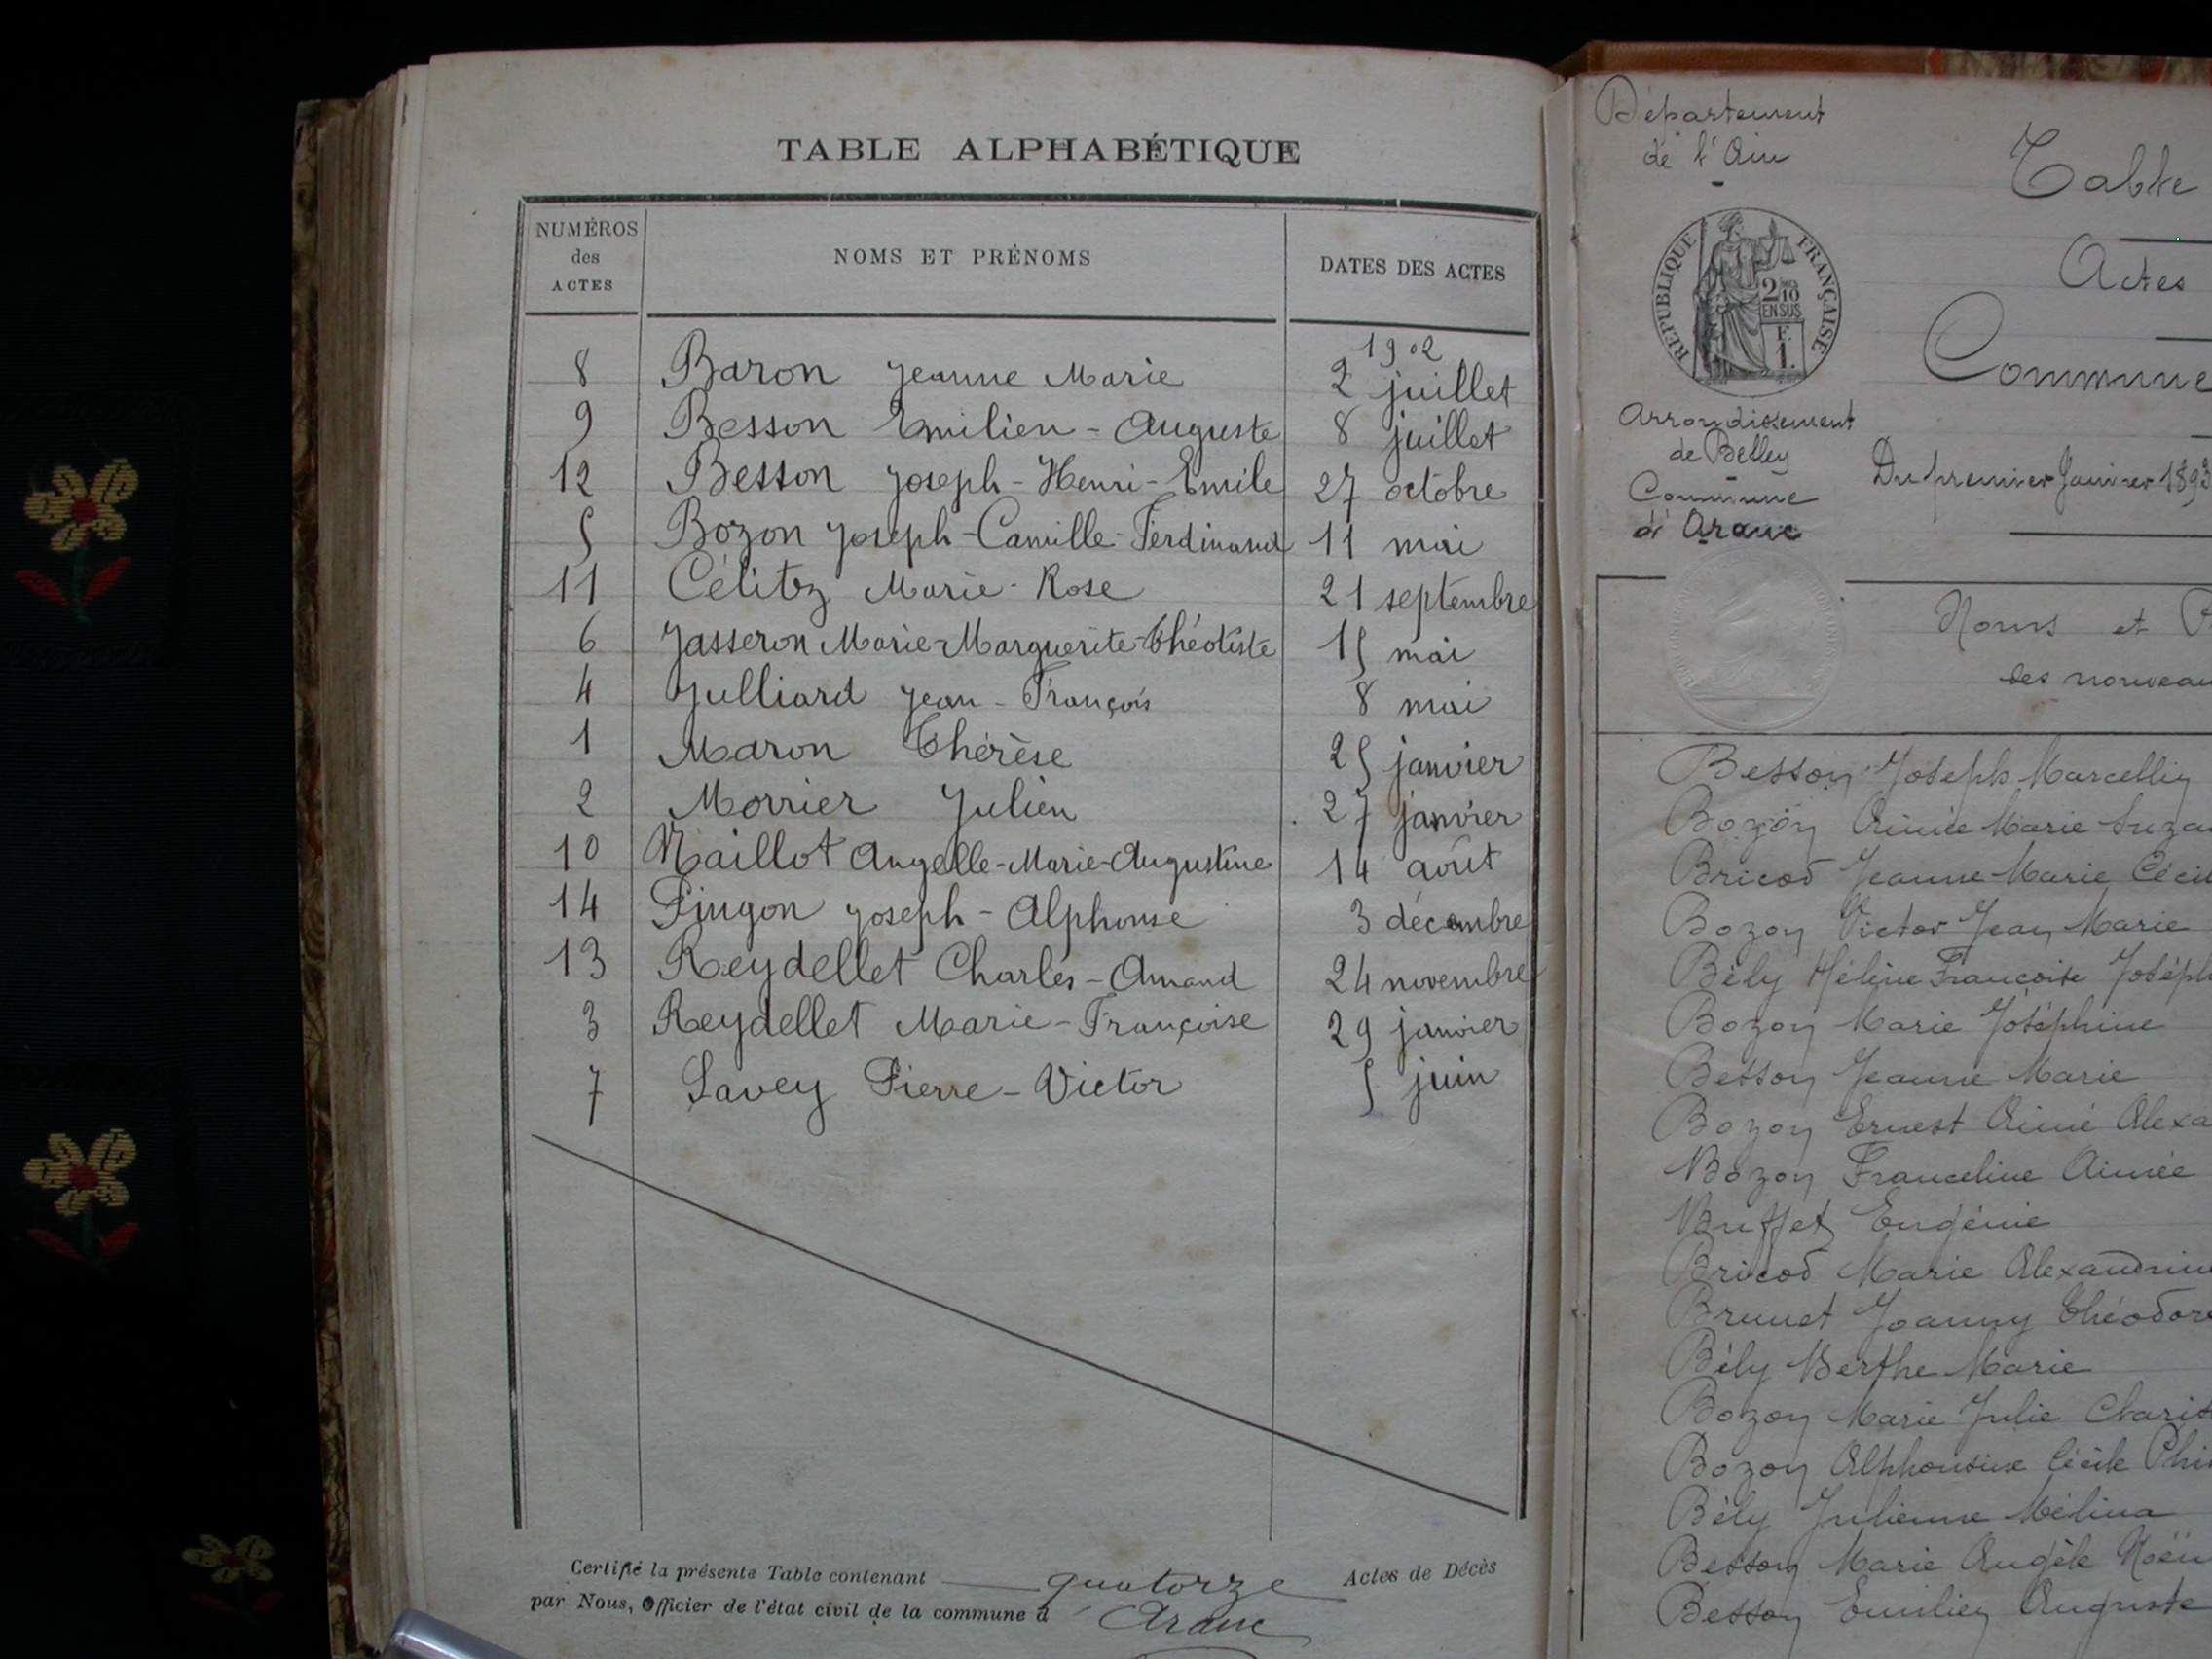 TABLE ALPHABÉTIQUE
NUMÉROS
des
ACTES
NOMS ET PRÉNOMS
DATES DES ACTES
1902
8 Baron Jeanne Marie 2 juillet
9 Besson Emilien-Auguste 8 juillet
12 Besson Joseph-Henri-Emile 27 octobre
5 Bozon Joseph-Camille-Ferdinand 11 mai
11 Célitez Marie-Rose 21 septembre
6 Jasseron Marie-Marguerite-Théotiste 15 mai
4 Julliard Jean-François 8 mai
1 Maron Thérèse 25 janvier
2 Morrier Julien 27 janvier
10 Naillot Angelle-Marie-Augustine 14 août
14 Pingon Joseph-Alphonse 3 décembre
13 Reydellet Charles-Amand 24 novembre
3 Reydellet Marie-Françoise 29 janvier
7 Savey Pierre-Victor 5 juin
Certifié la présente Table contenant quatorze Actes de Décès
par Nous, Officier de l'état civil de la commune d' Aranc
Département
de l'Ain
RÉPUBLIQUE FRANÇAISE
2/10
EN SUS
F.
1.
Arrondissement
de Belley
Commune
d'Aranc
Table
Actes
Commune
Du premier Janvier 1893
Noms et P
des nouveau
Besson Joseph Marcellin
Bozon Aimée Marie Suza
Bricod Jeanne Marie Cécil
Bozon Victor Jean Marie
Bély Hélène Françoise Joséph
Bozon Marie Joséphine
Besson Jeanne Marie
Bozon Ernest Aimé Alexa
Bozon Franceline Aimée
Buffet Eugénie
Bricod Marie Alexandrine
Brunet Joanny Théodore
Bély Berthe Marie
Bozon Marie Julie Charit
Bozon Alphonsine Cécile Phi
Bély Julienne Mélina
Besson Marie Angèle Noë
Besson Emilien Auguste